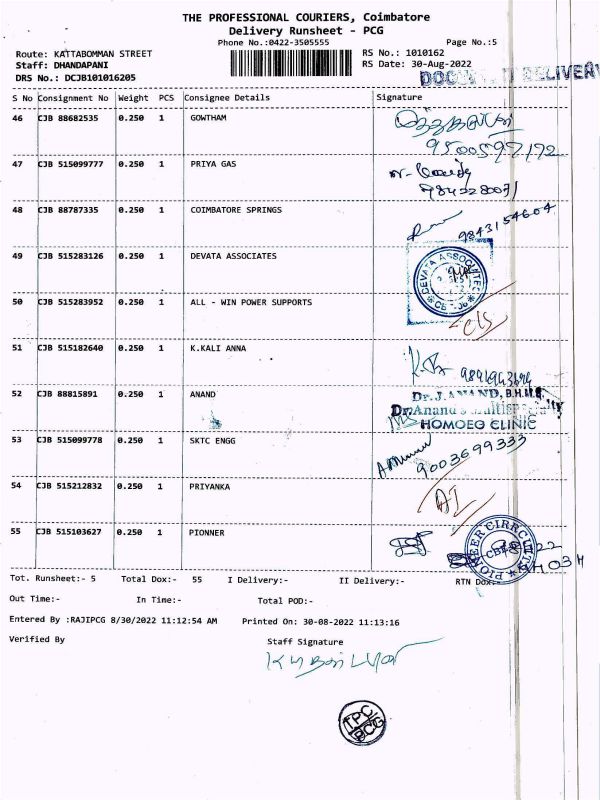 THE PROFESSIONAL COURIERS, Coimbatore
Delivery Runsheet - PCG
Phone No.:0422-3505555
Page No.:5
Route: KATTABOMMAN STREET
RS No.: 1010162
Staff: DHANDAPANI
RS Date: 30-Aug-2022
DRS No.: DCJB101016205
DELIVERY
S No Consignment No Weight PCS Consignee Details Signature
46 CJB 88682535 0.250 1 GOWTHAM
9500597172
47 CJB 515099777 0.250 1 PRIYA GAS
48 CJB 88787335 0.250 1 COIMBATORE SPRINGS
9843154604
49 CJB 515283126 0.250 1 DEVATA ASSOCIATES
DEVATA ASSOCIATES
50 CJB 515283952 0.250 1 ALL - WIN POWER SUPPORTS
51 CJB 515182640 0.250 1 K.KALI ANNA
52 CJB 88815891 0.250 1 ANAND
Dr. J. ANAND, B.H.M.S.
Dr. Anand's Multispeciality
HOMOEO CLINIC
53 CJB 515099778 0.250 1 SKTC ENGG
9003699333
54 CJB 515212832 0.250 1 PRIYANKA
55 CJB 515103627 0.250 1 PIONNER
PIONEER CIRRCUITS
Tot. Runsheet:- 5 Total Dox:- 55 I Delivery:- II Delivery:- RTN Dox:-
Out Time:- In Time:- Total POD:-
Entered By :RAJIPCG 8/30/2022 11:12:54 AM Printed On: 30-08-2022 11:13:16
Verified By Staff Signature
TPC/G